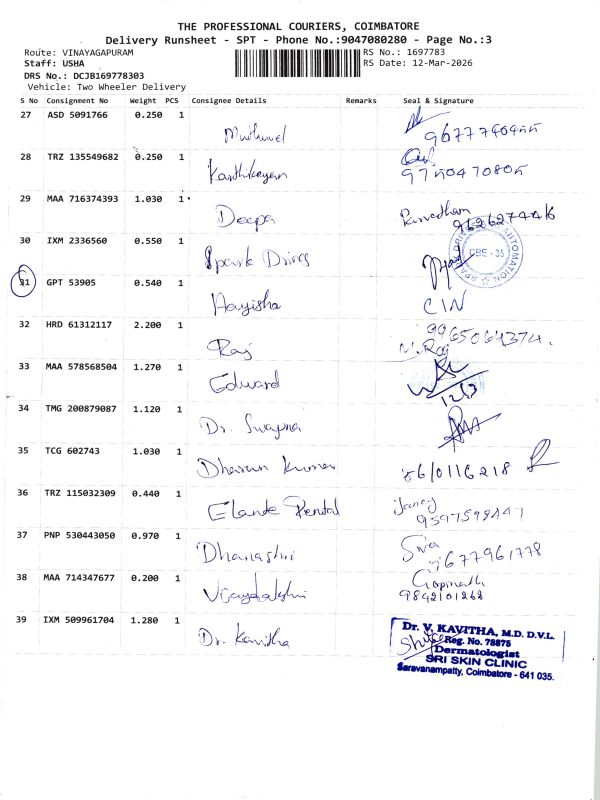 THE PROFESSIONAL COURIERS, COIMBATORE
Delivery Runsheet - SPT - Phone No.:9047080280 - Page No.:3
Route: VINAYAGAPURAM
RS No.: 1697783
Staff: USHA
RS Date: 12-Mar-2026
DRS No.: DCJB169778303
Vehicle: Two Wheeler Delivery
S No Consignment No Weight PCS Consignee Details Remarks Seal & Signature
27 ASD 5091766 0.250 1
28 TRZ 135549682 0.250 1
Karthikeyan 9750470805
29 MAA 716374393 1.030 1
Deepa
9626274416
30 IXM 2336560 0.550 1
Spark Drives
CBE - 35
31 GPT 53905 0.540 1
Aayisha CIN
32 HRD 61312117 2.200 1
Raj
33 MAA 578568504 1.270 1
Edward
12/3
34 TMG 200879087 1.120 1
Dr. Swapna
35 TCG 602743 1.030 1
Dharun Kumar
36 TRZ 115032309 0.440 1
Elante Rental
37 PNP 530443050 0.970 1
Dhanashri Siva
38 MAA 714347677 0.200 1
Vijayalakshi Gopinath
9842101262
39 IXM 509961704 1.280 1
Dr. Kavitha
Dr. V. KAVITHA, M.D. D.V.L.
Reg. No. 78875
Dermatologist
SRI SKIN CLINIC
Saravanampatty, Coimbatore - 641 035.